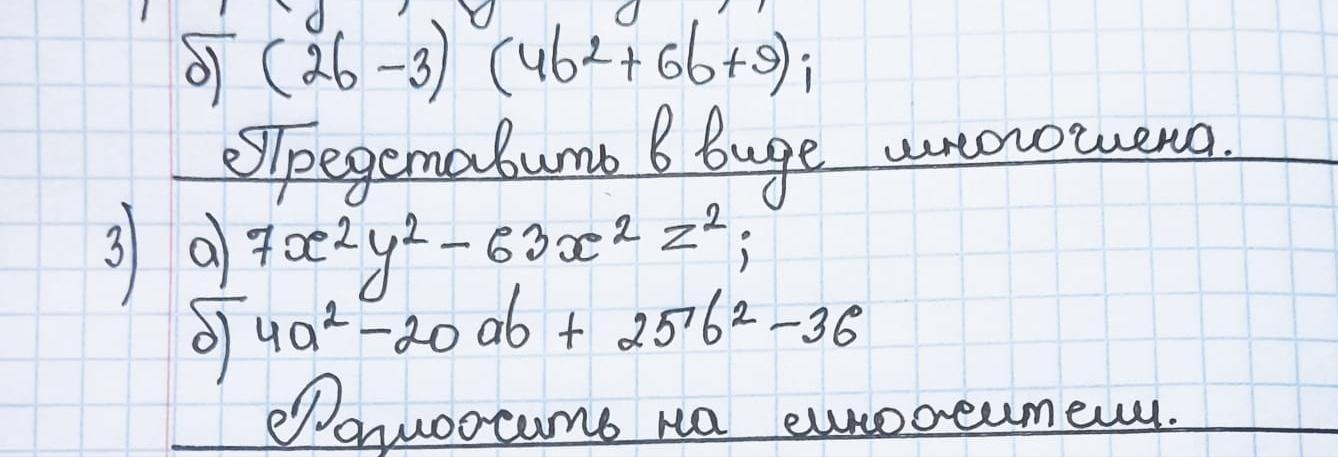 б) (2b - 3) (4b² + 6b + 9);
Представить в виде многочлена.
3) а) 7x²y² - 63x² z²;
б) 4a² - 20 ab + 25b² - 36
Разложить на множители.